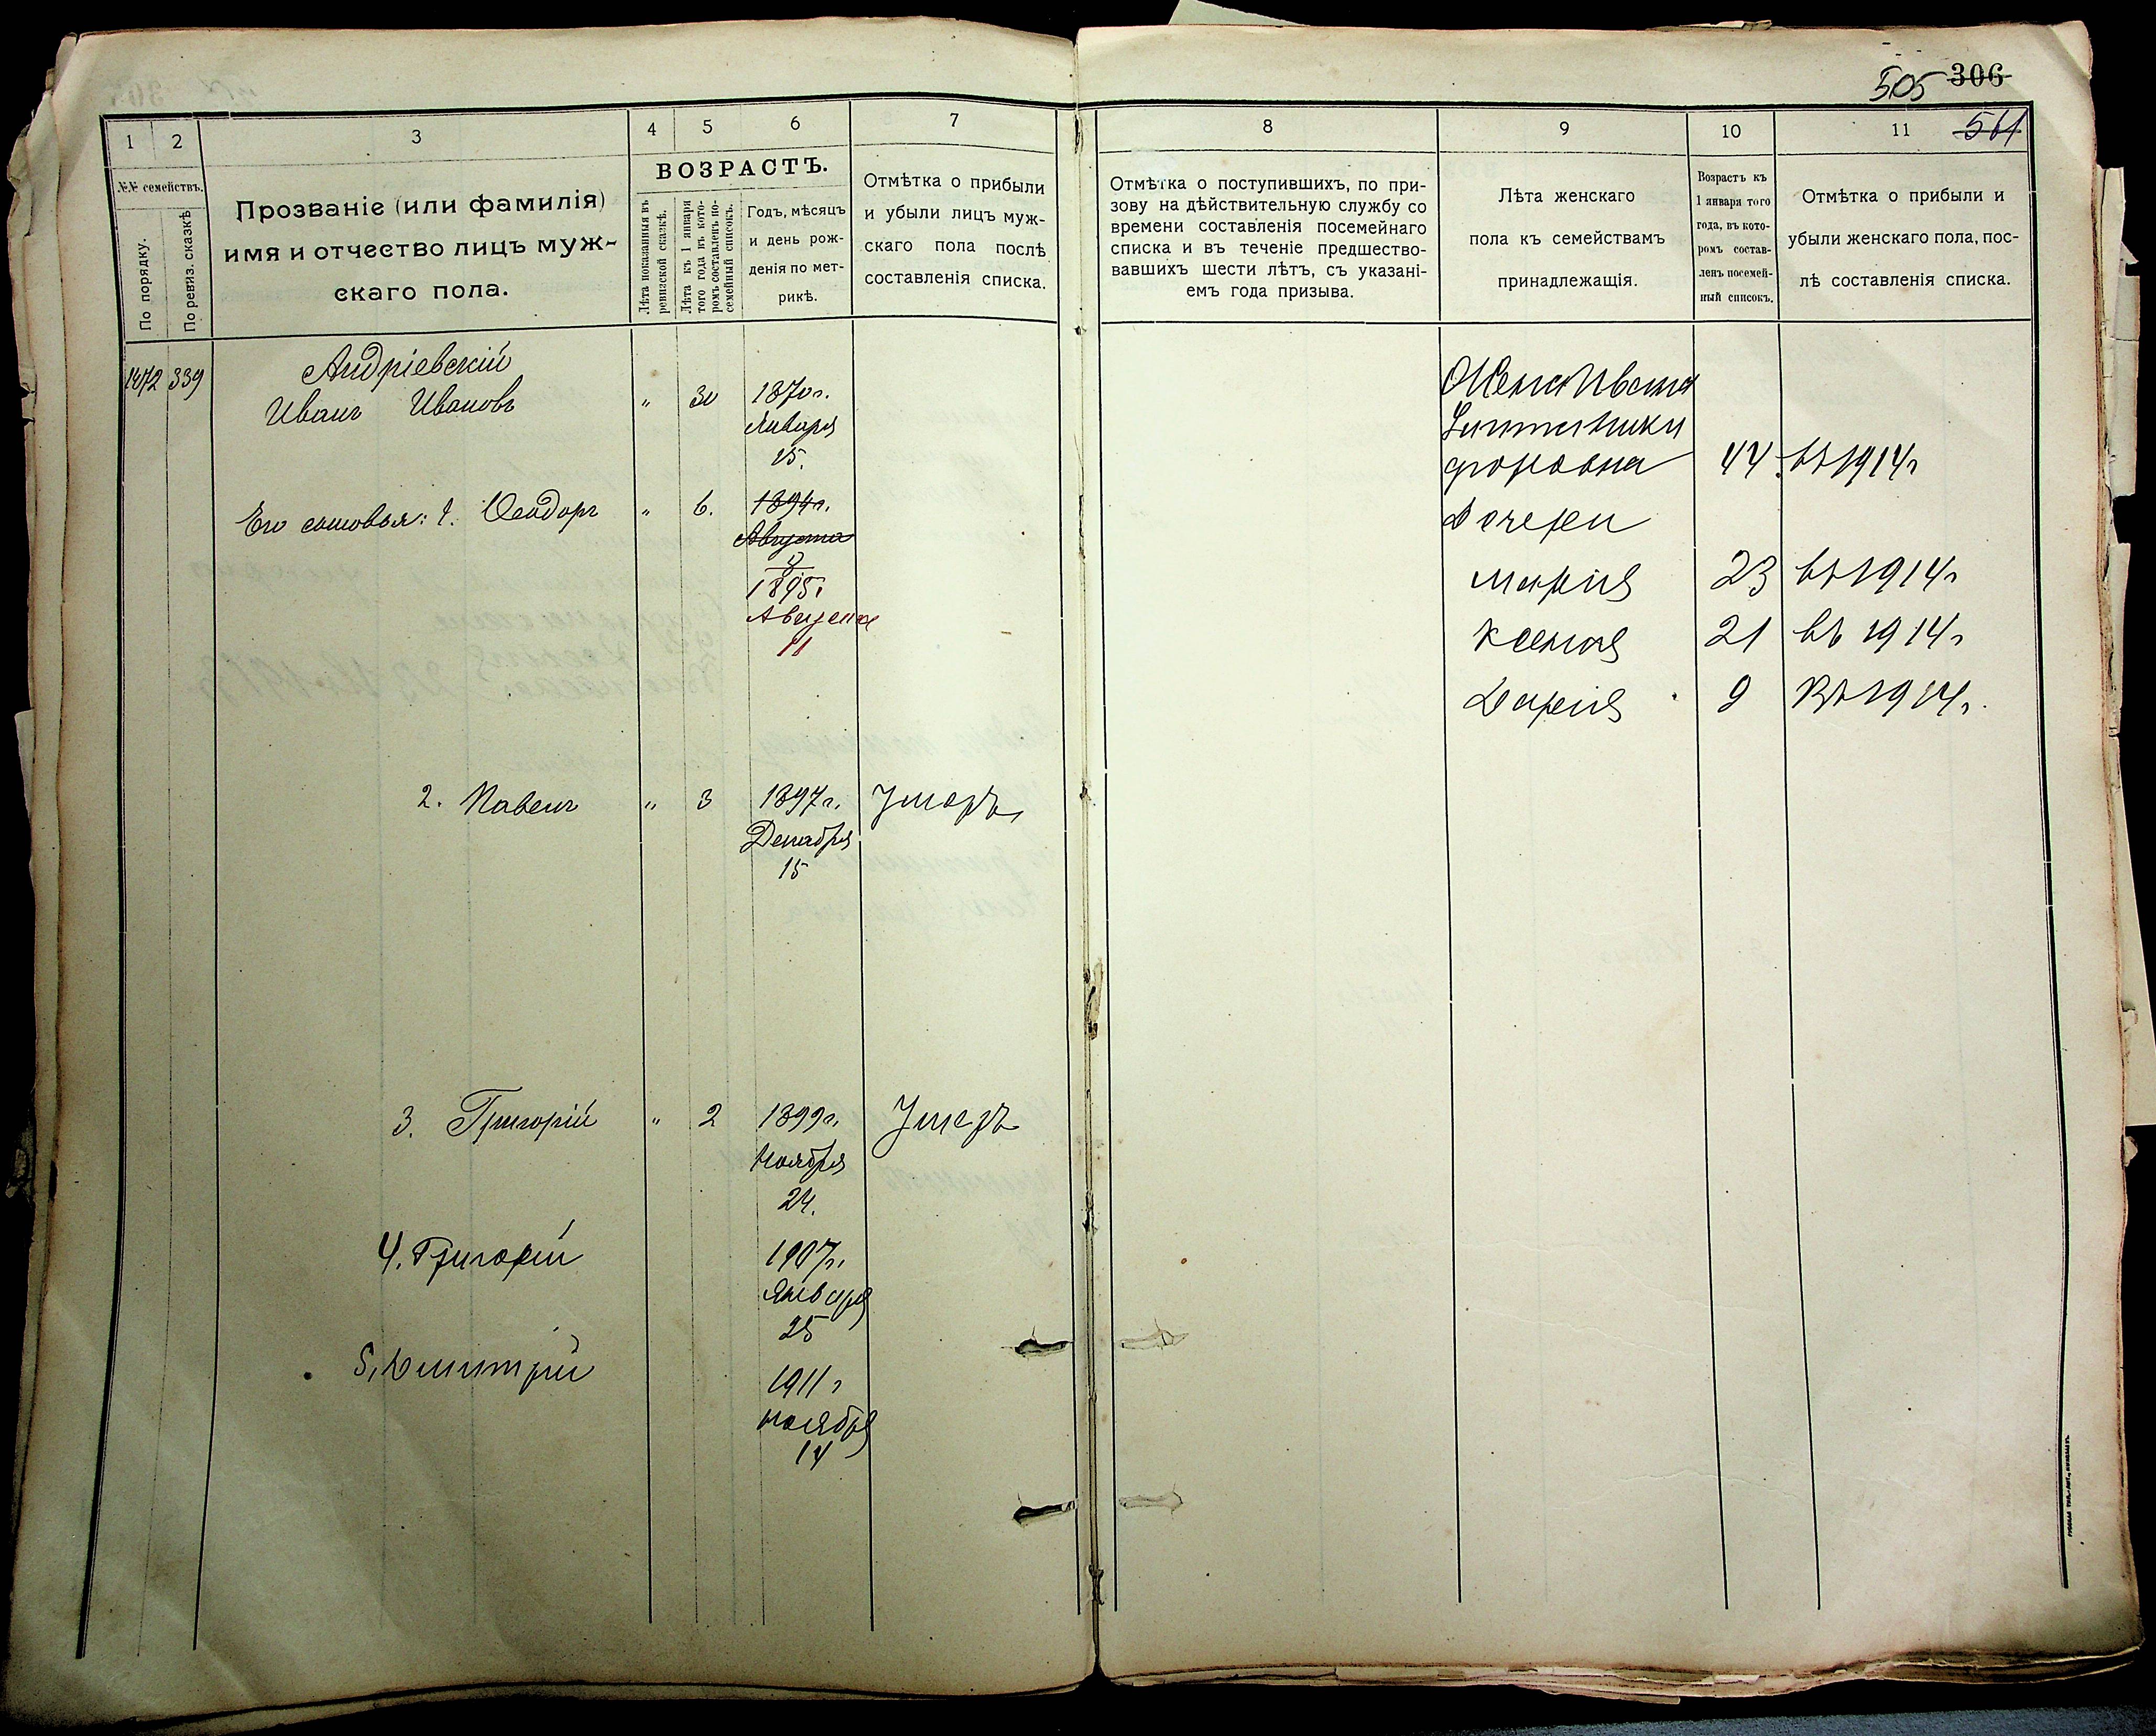 505 306
561
1 2 3 4 5 6 7
№№ семействъ.
По порядку.
По ревиз. сказкѣ
Прозваніе (или фамилія)
имя и отчество лицъ муж-
скаго пола.
ВОЗРАСТЪ.
Лѣта показанныя въ
ревизской сказкѣ.
Лѣта къ 1 января
того года въ кото-
ромъ составленъ по-
семейный списокъ.
Годъ, мѣсяцъ
и день рож-
денія по мет-
рикѣ.
Отмѣтка о прибыли
и убыли лицъ муж-
скаго пола послѣ
составленія списка.
8 9 10 11
Отмѣтка о поступившихъ, по при-
зову на дѣйствительную службу со
времени составленія посемейнаго
списка и въ теченіе предшество-
вавшихъ шести лѣтъ, съ указані-
емъ года призыва.
Лѣта женскаго
пола къ семействамъ
принадлежащія.
Возрастъ къ
1 января того
года, въ кото-
ромъ состав-
ленъ посемей-
ный списокъ.
Отмѣтка о прибыли и
убыли женскаго пола, пос-
лѣ составленія списка.
Андріевскій
1472 339 Иванъ Ивановъ " 30 1870 г.
Января
15.
Его сыновья: 1. Ѳеодоръ " 6. 1894 г.
Августа
1895 г
Августа
11
2. Павелъ " 3 1897 г. Умеръ
Декабря
15
3. Григорій " 2 1899 г. Умеръ
Ноября
24.
4. Григорій 1907 г.
Января
25
5. Дмитрій 1911 г
ноября
14
Жена Ивана
форовна 44 въ 1914 г
Дочери
Марія 23 въ 1914 г
Ксенія 21 въ 1914 г
Дарія 9 въ 1914 г.